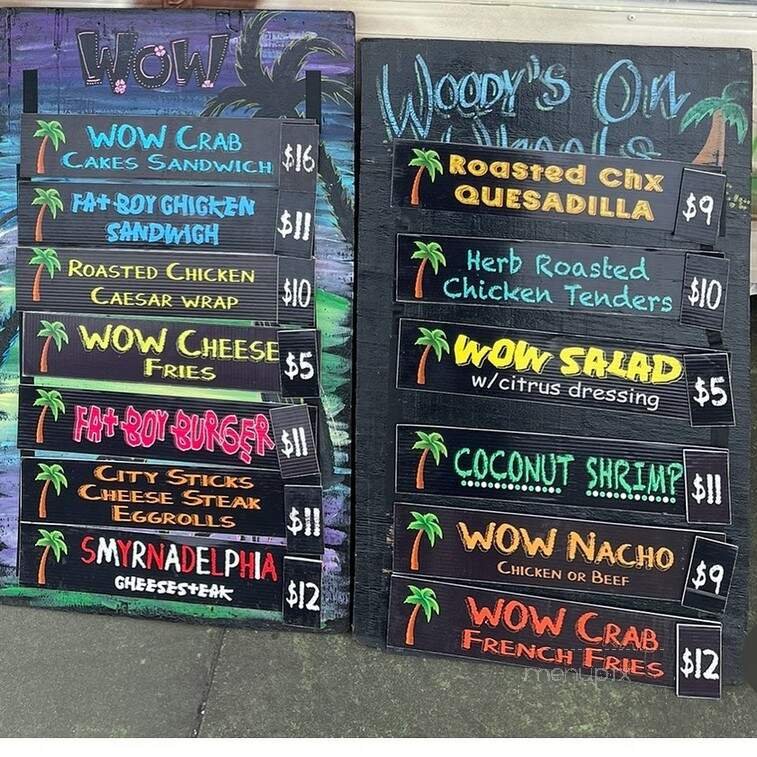 WOW
WOW CRAB
CAKES SANDWICH $16
FAT BOY CHICKEN
SANDWICH $11
ROASTED CHICKEN
CAESAR WRAP $10
WOW CHEESE
FRIES $5
FAT BOY BURGER $11
CITY STICKS
CHEESE STEAK
EGGROLLS $11
SMYRNADELPHIA
CHEESESTEAK $12
WOODY'S ON
Wheels
Roasted Chx
QUESADILLA $9
Herb Roasted
Chicken Tenders $10
WOW SALAD
w/citrus dressing $5
COCONUT SHRIMP $11
WOW NACHO
CHICKEN OR BEEF $9
WOW CRAB
FRENCH FRIES $12
menupix